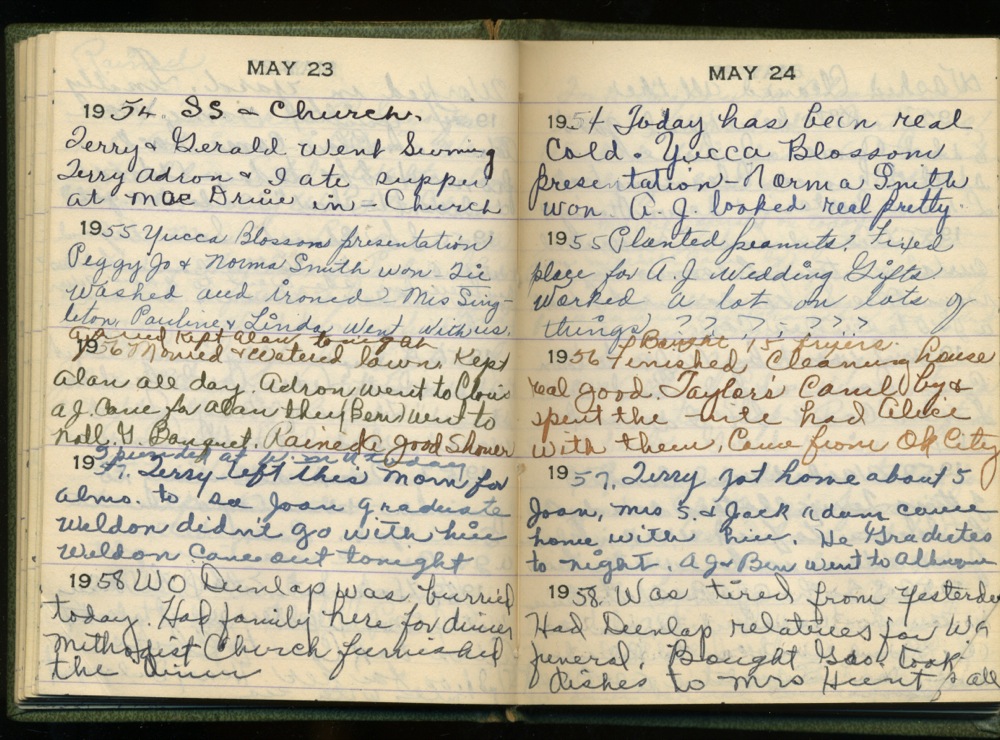 MAY 23
1954 SS & Church.
Terry & Gerald went Swiming
Terry Adron & I ate supper
at Mac Drive in - Church
1955 Yucca Blossom presentation
Peggy Jo & Norma Smith won
Washed and ironed Mrs Sing-
leton, Pauline & Linda went with us.
Kept Alan tonight
1956 & watered lawn. Kept
Alan all day. Adron went to Clovis
A J. Came for Alan they (Ben) went to
Natl. G. Banquet. Rained A good Shower
today
1957. Terry left this morn for
Almo. to see Joan graduate
Weldon didn't go with him
Weldon Came out tonight
1958 WO Dunlap was burried
today. Had family here for dinner
Methodist Church furnished
the dinner
MAY 24
1954 Today has been real
Cold. Yucca Blossom
presentation - Norma Smith
won. A. J. looked real pretty.
1955 Planted peanuts? Fixed
place for A. J Wedding Gifts
Worked a lot on lots of
things ? ? ? ? ? ?
Bought 15 fryers.
1956 Finished Cleaning house
real good. Taylors Came by &
spent the nite had Alice
with them. Came from Ok City
1957. Terry got home about 5
Joan, Mrs S. & Jack Adam came
home with him. He Gradates
to night. A J & Ben went to
1958. Was tired from yesterday
Had Dunlap relatives for
funeral. Bought Gas. took
dishes to Mrs Hunt & all